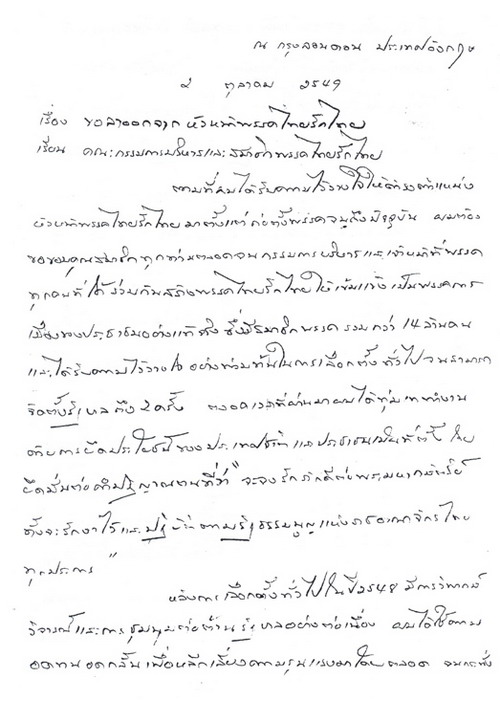 ณ กรุงลอนดอน ประเทศอังกฤษ
๒ ตุลาคม 2549
เรื่อง ขอลาออกจากหัวหน้าพรรคไทยรักไทย
เรียน คณะกรรมการบริหารและสมาชิกพรรคไทยรักไทย
ตามที่ผมได้รับความไว้วางใจให้ดำรงตำแหน่ง
หัวหน้าพรรคไทยรักไทยมาตั้งแต่ก่อตั้งพรรคจนถึงปัจจุบัน ผมต้อง
ขอขอบคุณสมาชิกทุกท่านตลอดจนกรรมการบริหารและเจ้าหน้าที่พรรค
ทุกคนที่ได้ร่วมกันสร้างพรรคไทยรักไทยให้เข้มแข็ง เป็นพรรคการ
เมืองของประชาชนอย่างแท้จริง ซึ่งมีสมาชิกพรรค รวมกว่า 14 ล้านคน
และได้รับความไว้วางใจ อย่างท่วมท้นในการเลือกตั้ง ทั่วไป จนสามารถ
จัดตั้งรัฐบาลถึง 2 ครั้ง ตลอดเวลาที่ผ่านมาผมได้ทุ่มเททำงาน
ด้วยการยึดประโยชน์ของประเทศชาติและประชาชนเป็นที่ตั้ง โดย
ยึดมั่นต่อคำปฏิญาณตนที่ว่า " จะจงรักภักดีต่อพระมหากษัตริย์
ทั้งจะรักษาไว้และปฏิบัติตามรัฐธรรมนูญแห่งราชอาณาจักรไทย
ทุกประการ "
หลังการเลือกตั้งทั่วไปในปี 2548 มีการวิพากษ์
วิจารณ์และการชุมนุมต่อต้านรัฐบาลอย่างต่อเนื่อง ผมได้ใช้ความ
อดทนอดกลั้น เพื่อหลีกเลี่ยงความรุนแรงมาโดยตลอด จนกระทั่ง